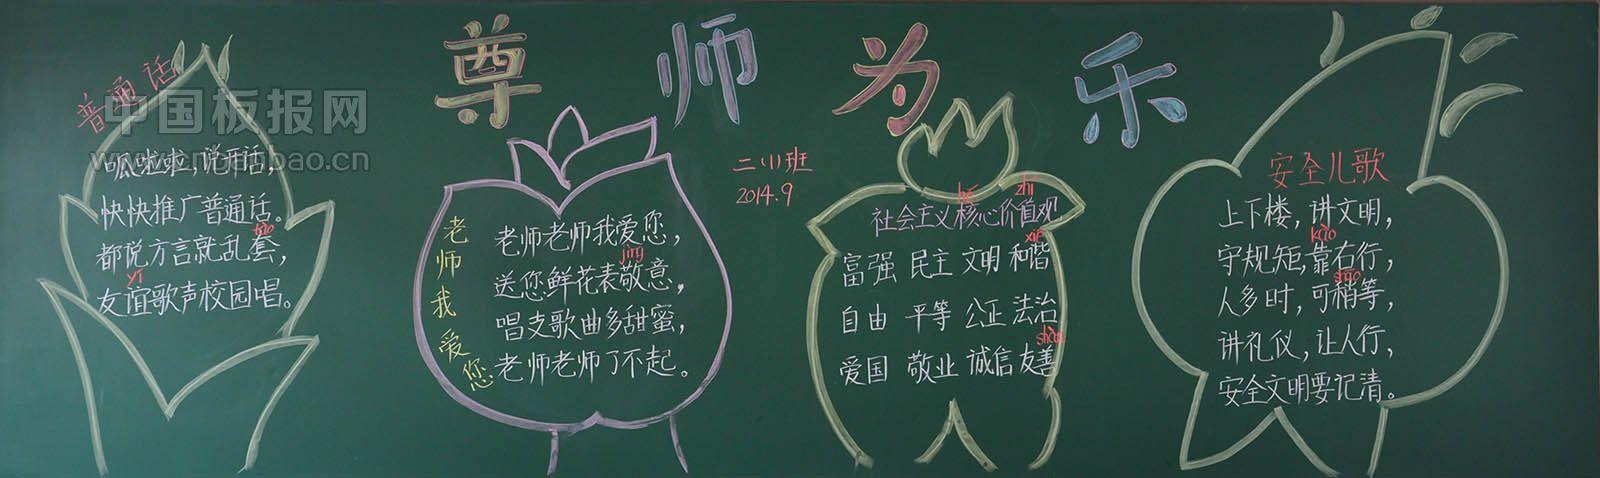 尊师为乐
普通话
中国板报网
www.cnbanbao.cn
呱啦啦,说开话,
快快推广普通话。
tào
都说方言就乱套,
yì
友谊歌声校园唱。
老师我爱您
老师老师我爱您,
jìng
送您鲜花表敬意,
唱支歌曲多甜蜜,
老师老师了不起。
二(1)班
2014.9
hé zhí
社会主义核心价值观
xié
富强 民主 文明 和谐
自由 平等 公正 法治
shàn
爱国 敬业 诚信 友善
安全儿歌
上下楼,讲文明,
kào
守规矩,靠右行,
shāo
人多时,可稍等,
讲礼仪,让人行,
安全文明要记清。